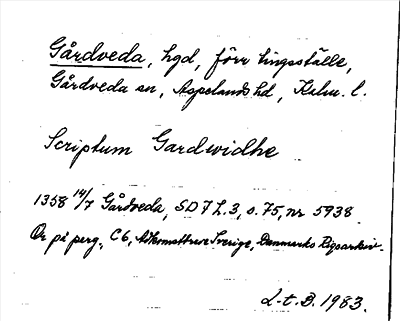 Gårdveda, hgd, förr tingsställe,
Gårdveda sn, Aspelands hd, Kalm. l.
Scriptum Gardwidhe
1358 14/7 Gårdveda, SD 7 h. 3, s. 75, nr 5938
Or på perg., C6, Sverige, Danmarks Rigsarkiv.
L.t.B. 1983.